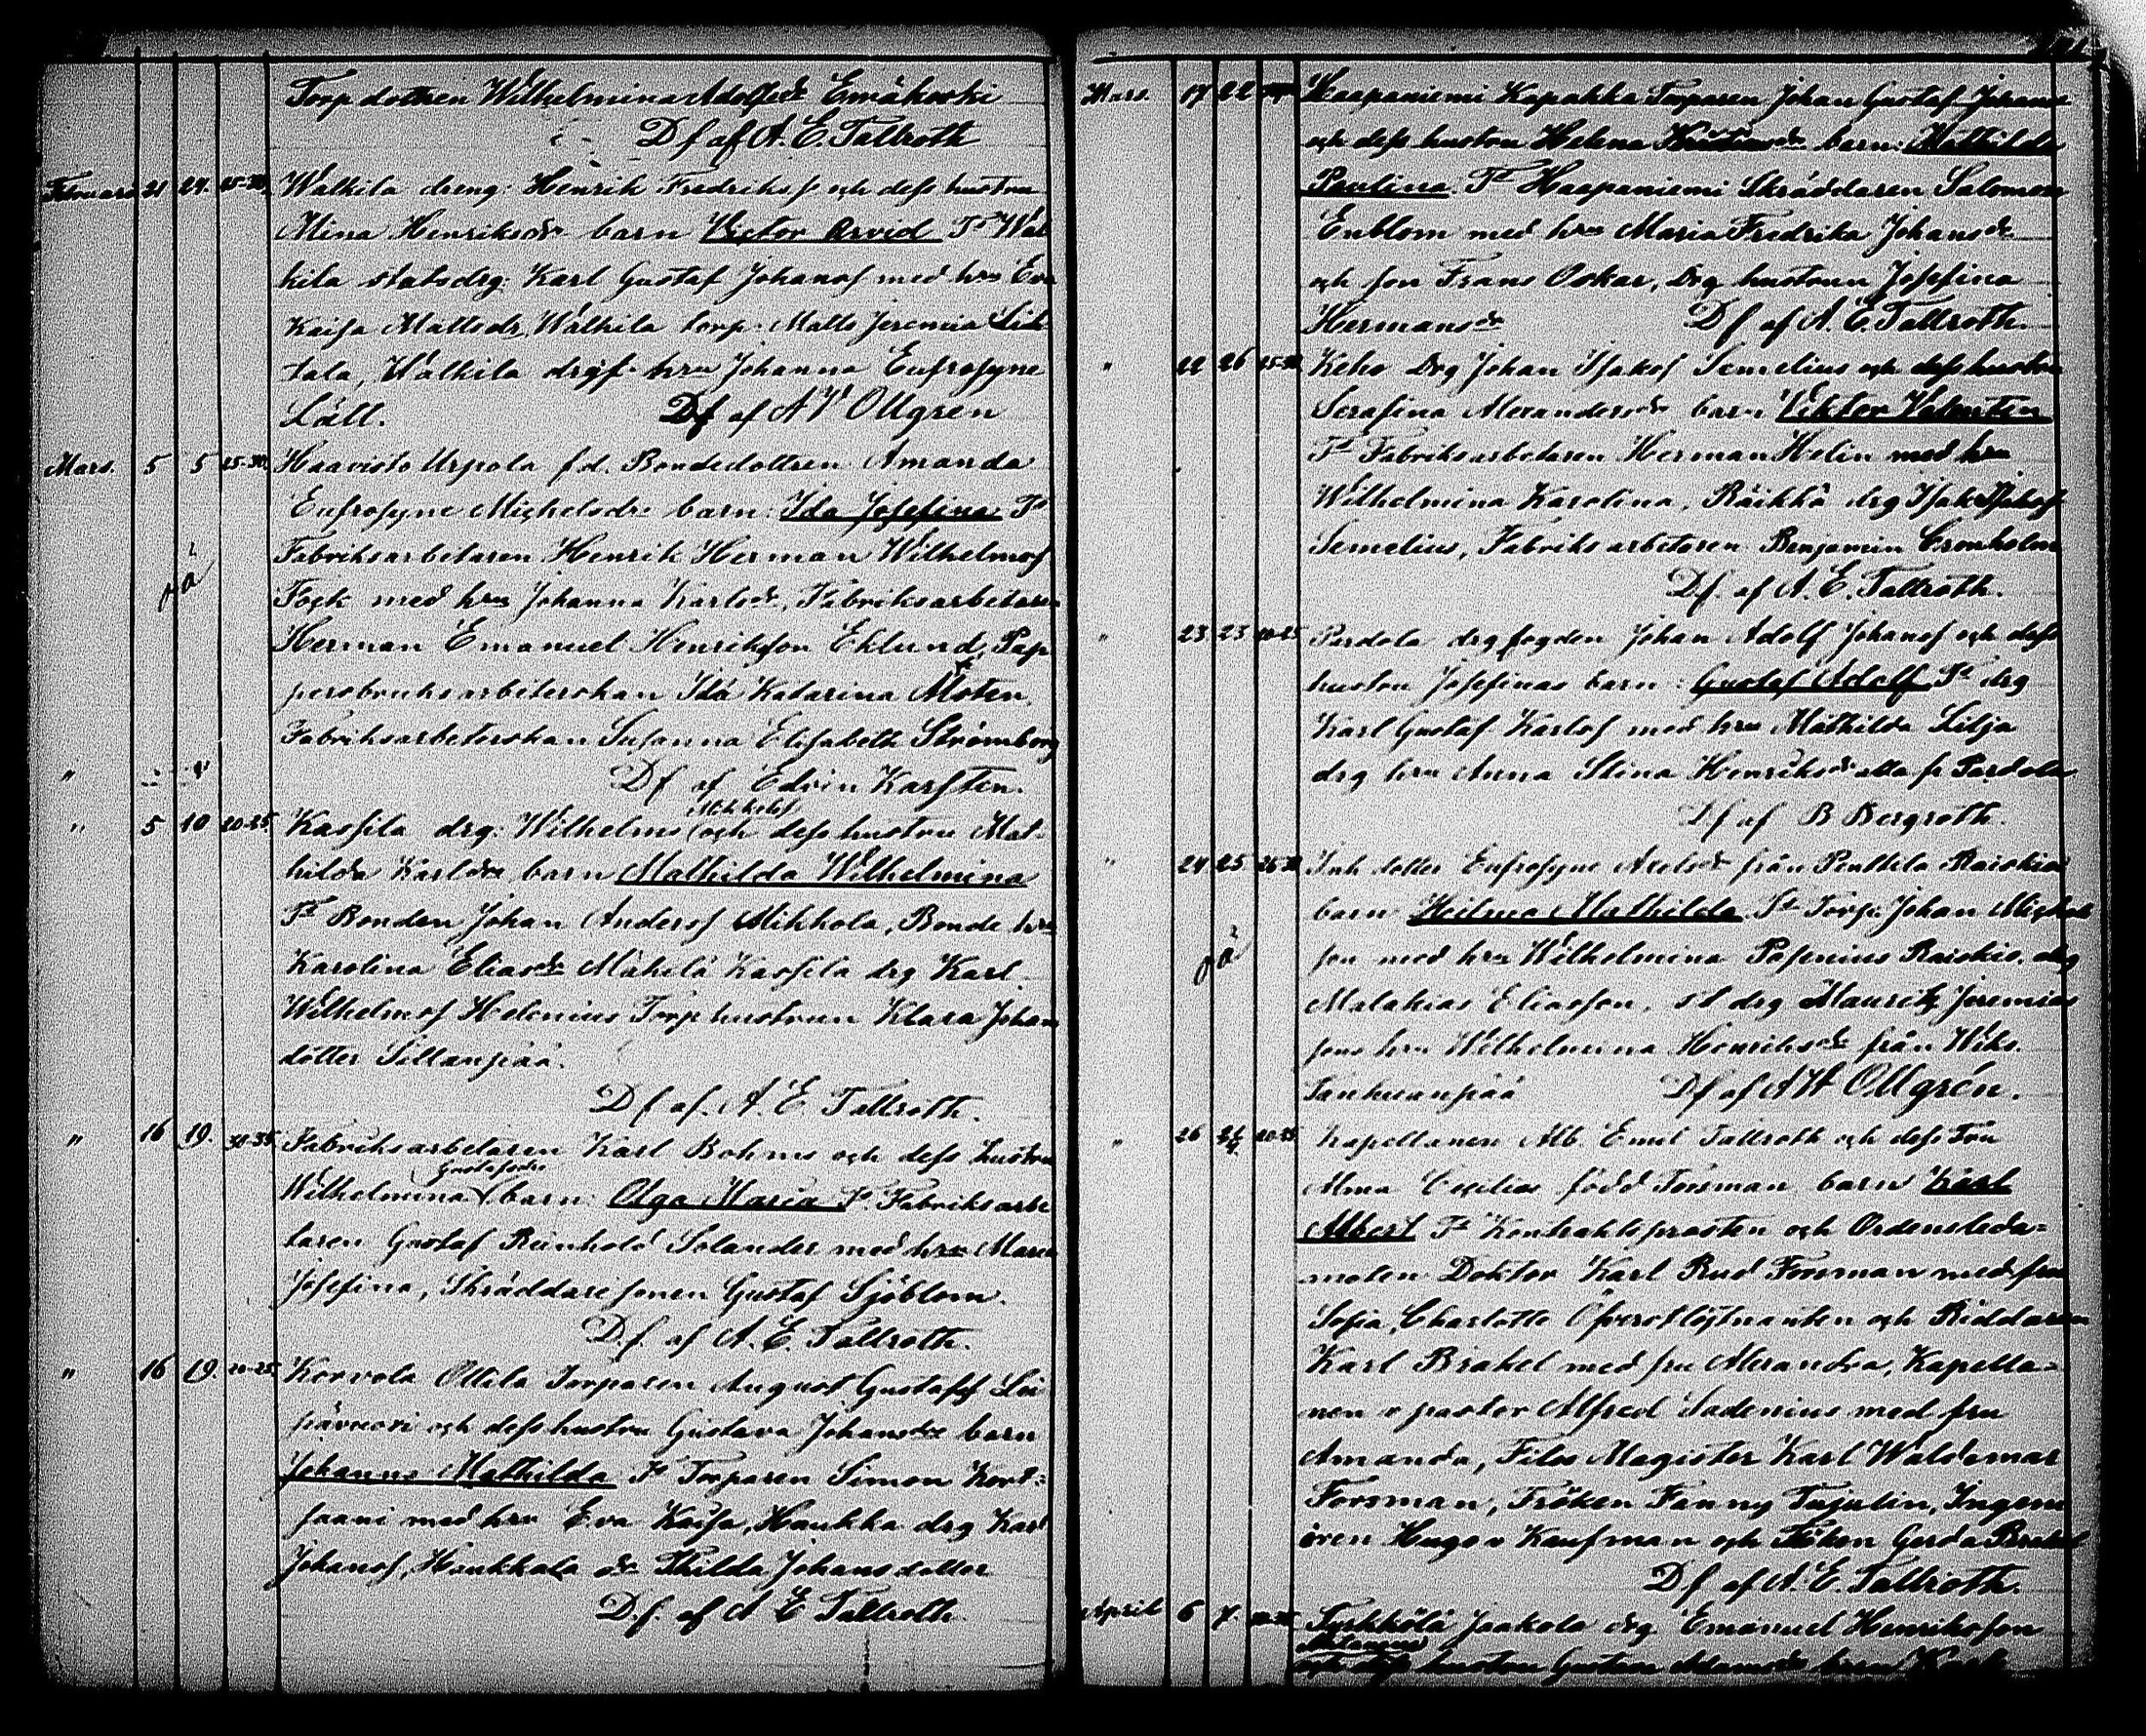 Torp dottren Wilhelmina Adolfsdr Emäkoski
Df af A. E. Tallroth
Februari 21 24. 25-30. Walkila dreng: Henrik Fredrikss och dess hustru
Mina Henriksdr barn Victor Arvid Ts Wal
kila statsdrg: Karl Gustaf Johanss med hru Eva
Kaisa Mattsdr, Walkila torp: Matts Jeremia
tala, Walkila drgf hru Johanna Eufrosyne
Läll. Df af A W Ollgren
Mars. 5 5 25-30. Haavisto Urpola fd. Bondedottren Amanda
Eufrosyne Michelsdr barn: Ida Josefina Ts
Fabriksarbetaren Henrik Herman Wilhelmss
Fock med hru Johanna Karlsdr, Fabriksarbetaren
Herman Emanuel Henriksson Eklund, Pap
persbruksarbeterskan Ida Katarina
Fabriksarbeterskan Susanna Elisabeth Strömberg
" Df af Edvin Karsten.
Mihkelss
" 5 10 20-25. Kassila drg: Wilhelms och dess hustru Mat-
hilda Karlsdr barn Mathilda Wilhelmina
Ts Bonden Johan Anderss Mikkola, Bonde hru
Karolina Eliasdr Mäkilä Kassila drg Karl
Wilhelmss Helenius Torp hustrun Klara Johans
dotter Sillanpää.
Df af. A. E Tallroth.
" 16 19. 30-35. Fabriksarbetaren Karl Bohms och dess hustru
Gustafsdr
Wilhelmina barn: Olga Maria Ts Fabriksarbe
taren Gustaf Reinhold Solander med hru Maria
Josefina, Skräddare sonen Gustaf Sjöblom.
D.f. af A. E. Tallroth.
" 16 19. 20-25. Korvola Ottila Torparen August Gustafss Loi
och dess hustru Gustava Johansdr barn
Johanna Mathilda Ts Torparen Simon Kort-
saani med hru Eva Kaisa, Haukka drg Karl
Johanss, Haukkala dr Thilda Johansdotter
D.f. af A E Tallroth
Mars. 17 22 Haapaniemi Kapakka Torparen Johan Gustaf Johans
och dess hustru Helena barn: Mathilda
Paulina. Ts Haapaniemi Skräddaren Salomon
Enblom med hru Maria Fredrika Johansdr
och son Frans Oskar, Drg hustrun Josefina
Hermansdr Df af A. E. Tallroth.
" 22 26 25-30 Keho Drg Johan Isakss Semelius och dess hustru
Serafina Alexandersdr barn Viktor Valentin
Ts Fabriksarbetaren Herman Helin med hru
Wilhelmina Karolina, Räikkä drg Isak
Semelius, Fabriks arbetaren Benjamin Cronholm
Df. af A. E. Tallroth.
" 23 25 20-25 Pardola drg fogden Johan Adolf Johanss och dess
hustru Josefinas barn: Gustaf Adolf Ts drg
Karl Gustaf Karlss med hru Mathilda Lilja
drg hru Anna Stina Henriksdr alla fr Pardola
Df af B Bergroth.
" 24 25 25-30 Inh dotter Eufrosyne Axelsdr från Penttila
barn Hilma Mathilda Ts Torp: Johan Michels
son med hru Wilhelmina drg
Malakias Eliasson, st drg Mauritz Jeremias
sons hru Wilhelmina Henriksdr från Wiks.
Tanhuanpää Df af A W Ollgrén.
" 26 20-25 Kapellanen Alb. Emil Tallroth och dess Fru
Alma Cecilias född Forsman barn Karl
Albert Ts Kontraktsprosten och Ordensleda-
moten Doktor Karl Rud Forsman med fru
Sofia, Charlotte Öfverstlöjtnanten och Riddaren
Karl Brakel med fru Alexandra, Kapella-
nen v pastor Alfred Sadenius med fru
Amanda, Filos Magister Karl Waldemar
Forsman, Fröken Fanny Tujulin, Ingeni
ören Hugo v Kaufman och Fröken Gerda Brakel
Df af A. E. Tallroth.
April 6 7. Jaakola drg Emanuel Henriksson
och dess hustru Gustava barn Karl